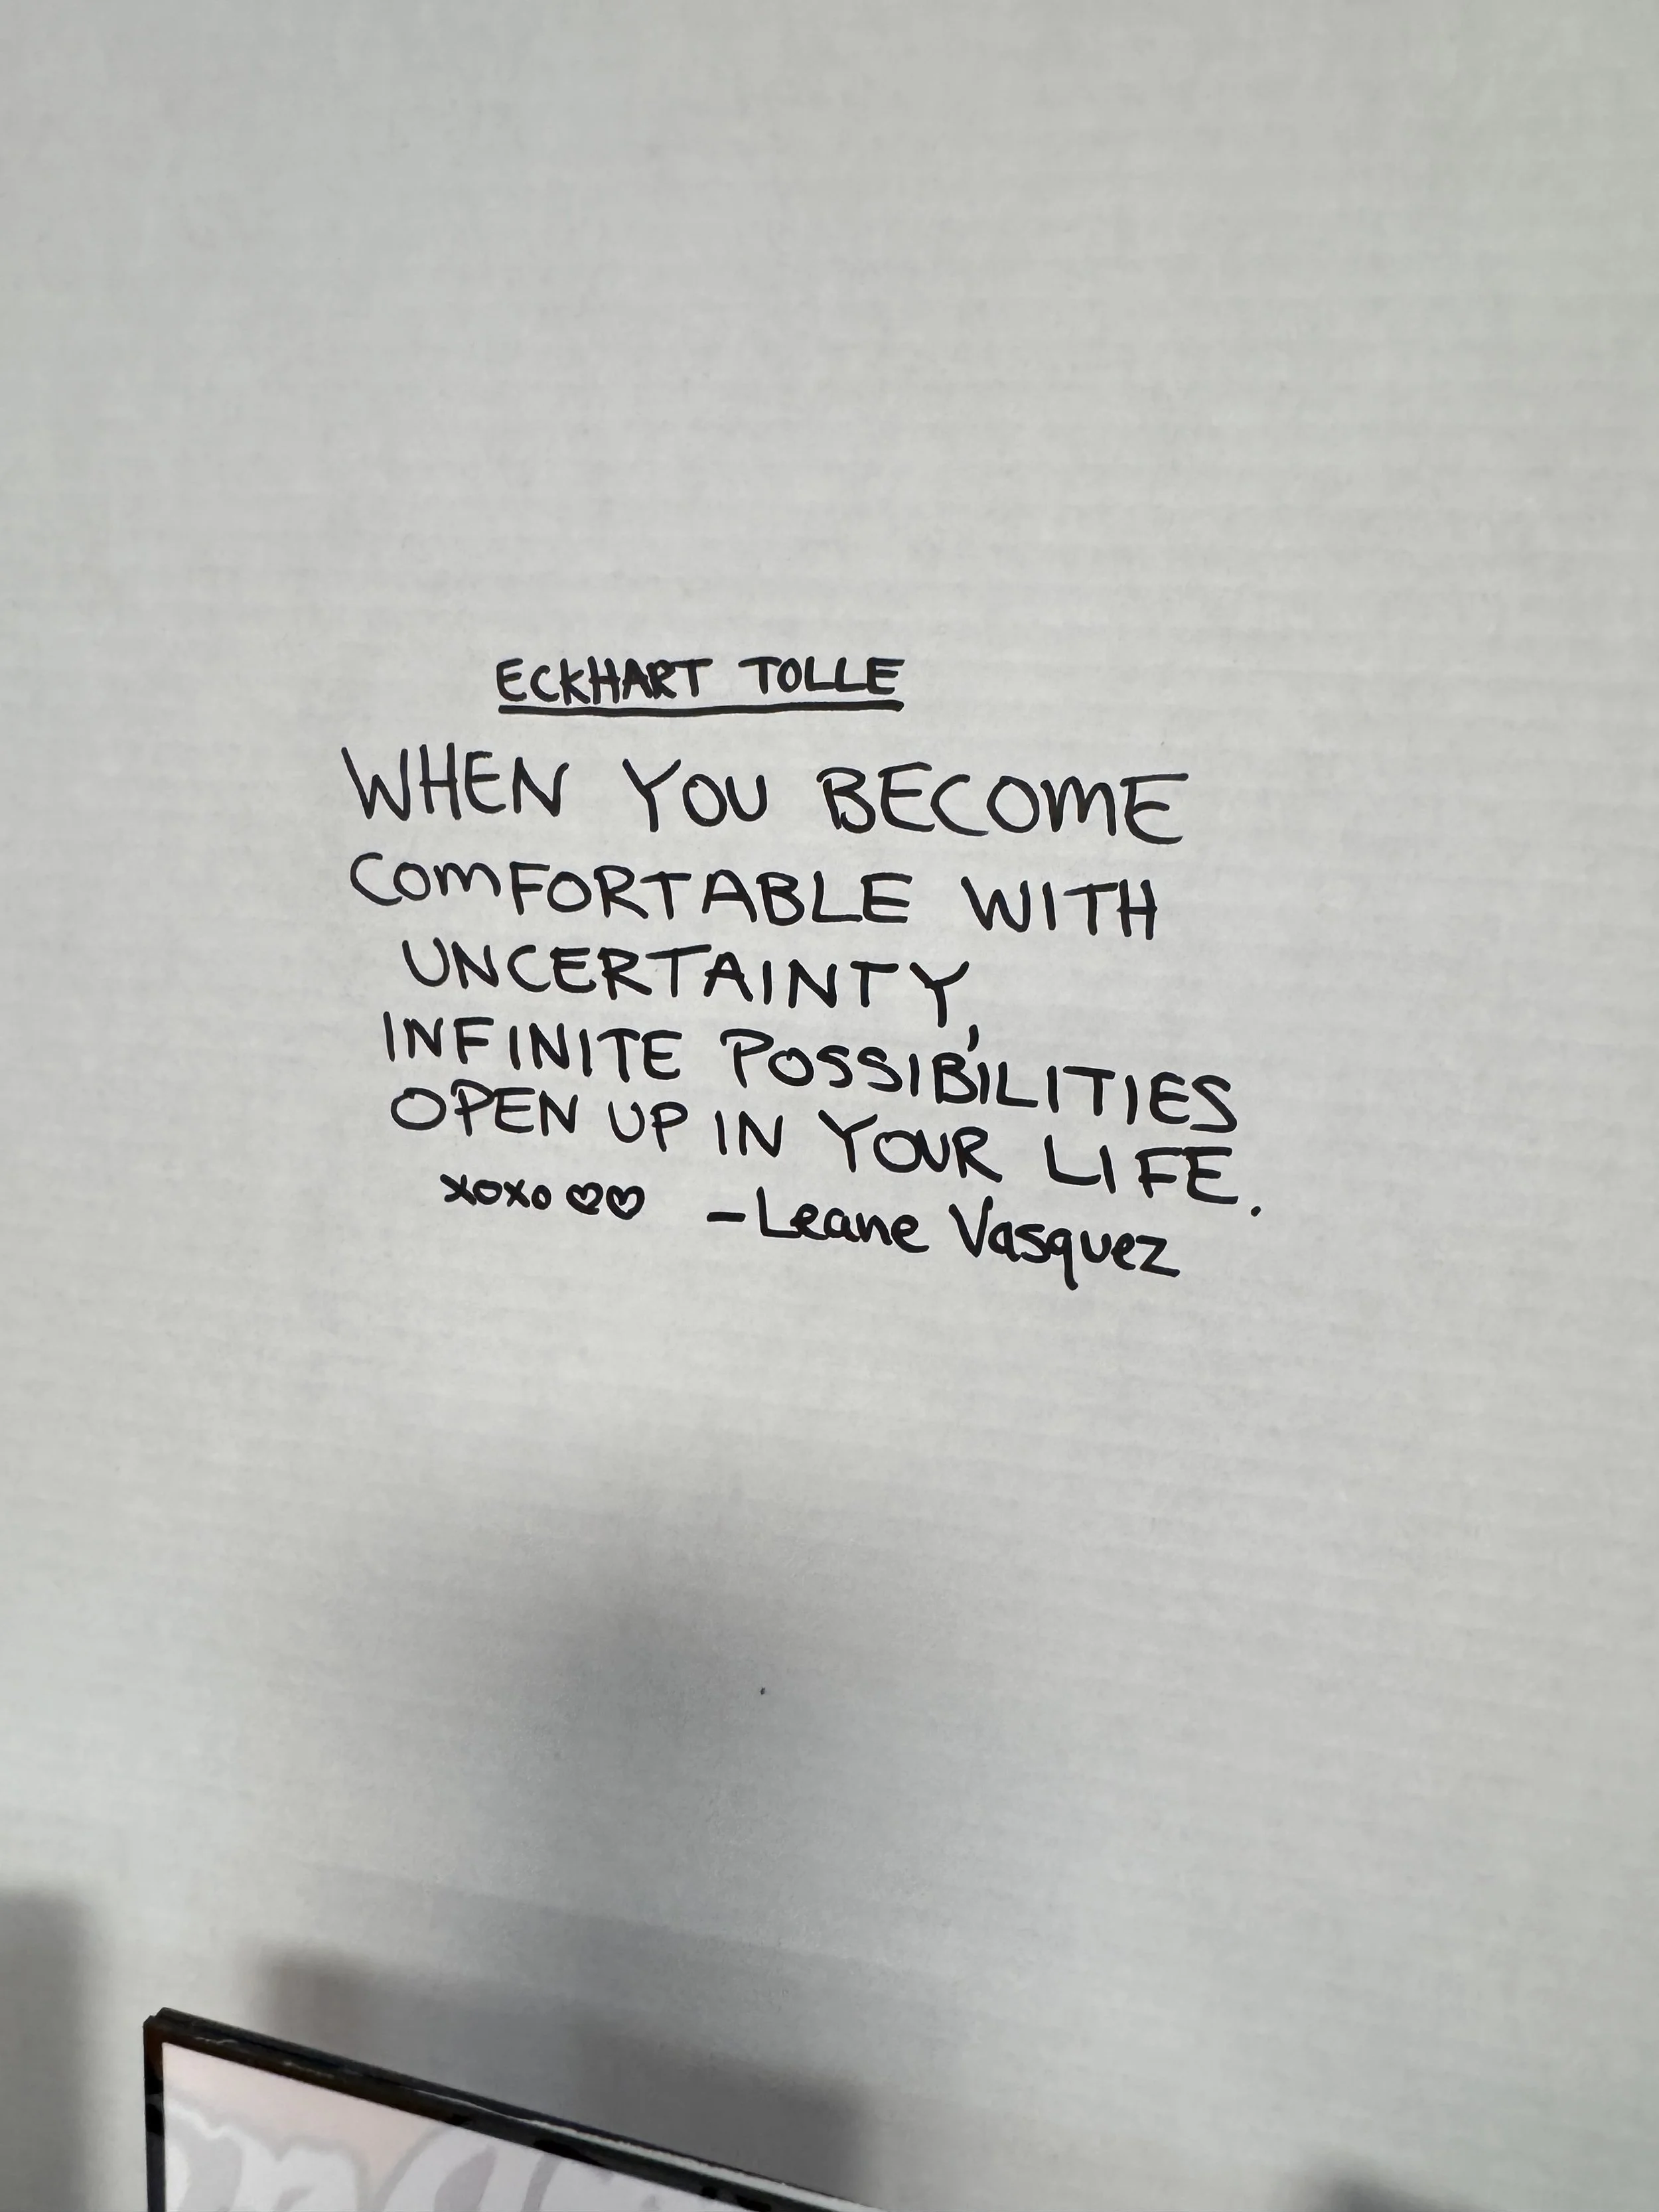 ECKHART TOLLE
WHEN YOU BECOME
COMFORTABLE WITH
UNCERTAINTY,
INFINITE POSSIBILITIES
OPEN UP IN YOUR LIFE.
xoxo ♡♡ -Leane Vasquez